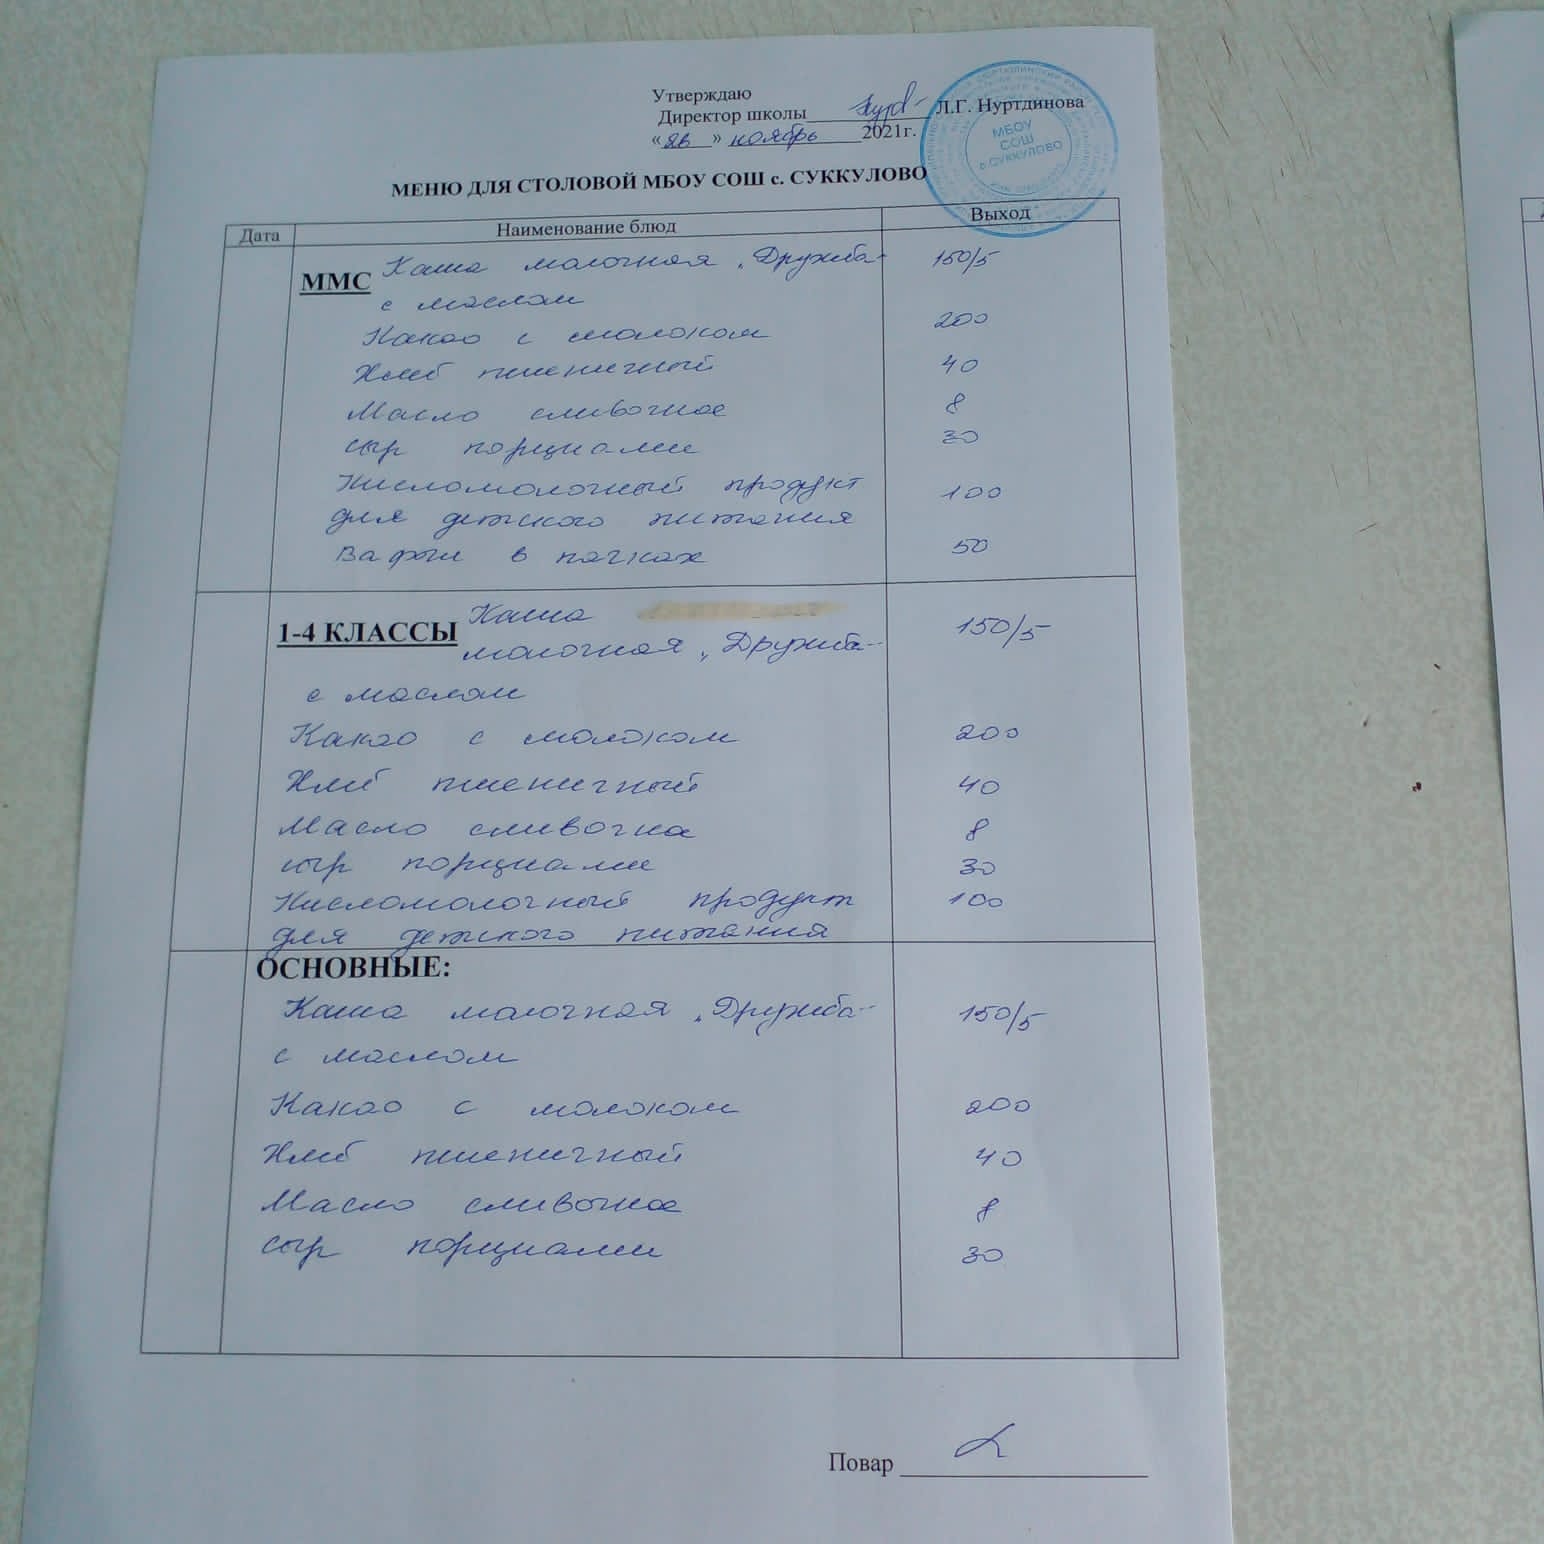 Утверждаю
Директор школы Л.Г. Нуртдинова
« » ноябрь 2021г.
МБОУ
СОШ
с.СУККУЛОВО
МЕНЮ ДЛЯ СТОЛОВОЙ МБОУ СОШ с. СУККУЛОВО
Дата Наименование блюд Выход
ММС Каша молочная „Дружба" 150/5
с маслом
Какао с молоком 200
Хлеб пшеничный 40
Масло сливочное 8
сыр порциами 30
Кисломолочный продукт 100
для детского питания
Вафли в пачках 50
1-4 КЛАССЫ Каша
молочная „Дружба" 150/5
с маслом
Какао с молоком 200
Хлеб пшеничный 40
Масло сливочна 8
сыр порциами 30
Кисломолочный продукт 100
для детского питания
ОСНОВНЫЕ:
Каша молочная „Дружба" 150/5
с маслом
Какао с молоком 200
Хлеб пшеничный 40
Масло сливочное 8
сыр порциами 30
Повар